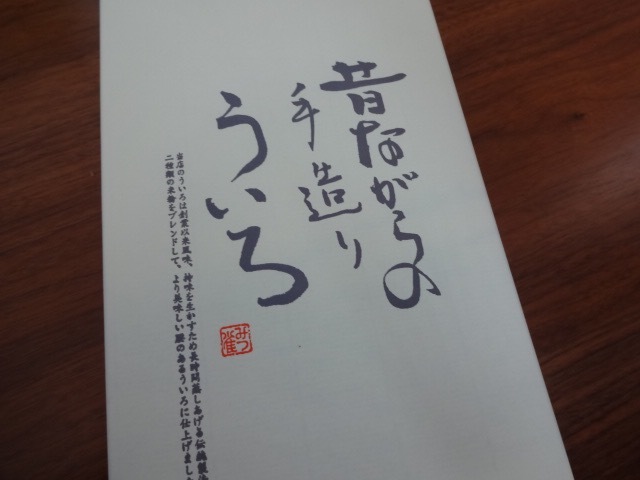 昔ながらの
手造り
ういろ
当店のういろは創業以来風味、持味を生かすため長時間蒸しあげる伝統製法
二種類の米粉をブレンドして、より美味しい腰のあるういろに仕上げました